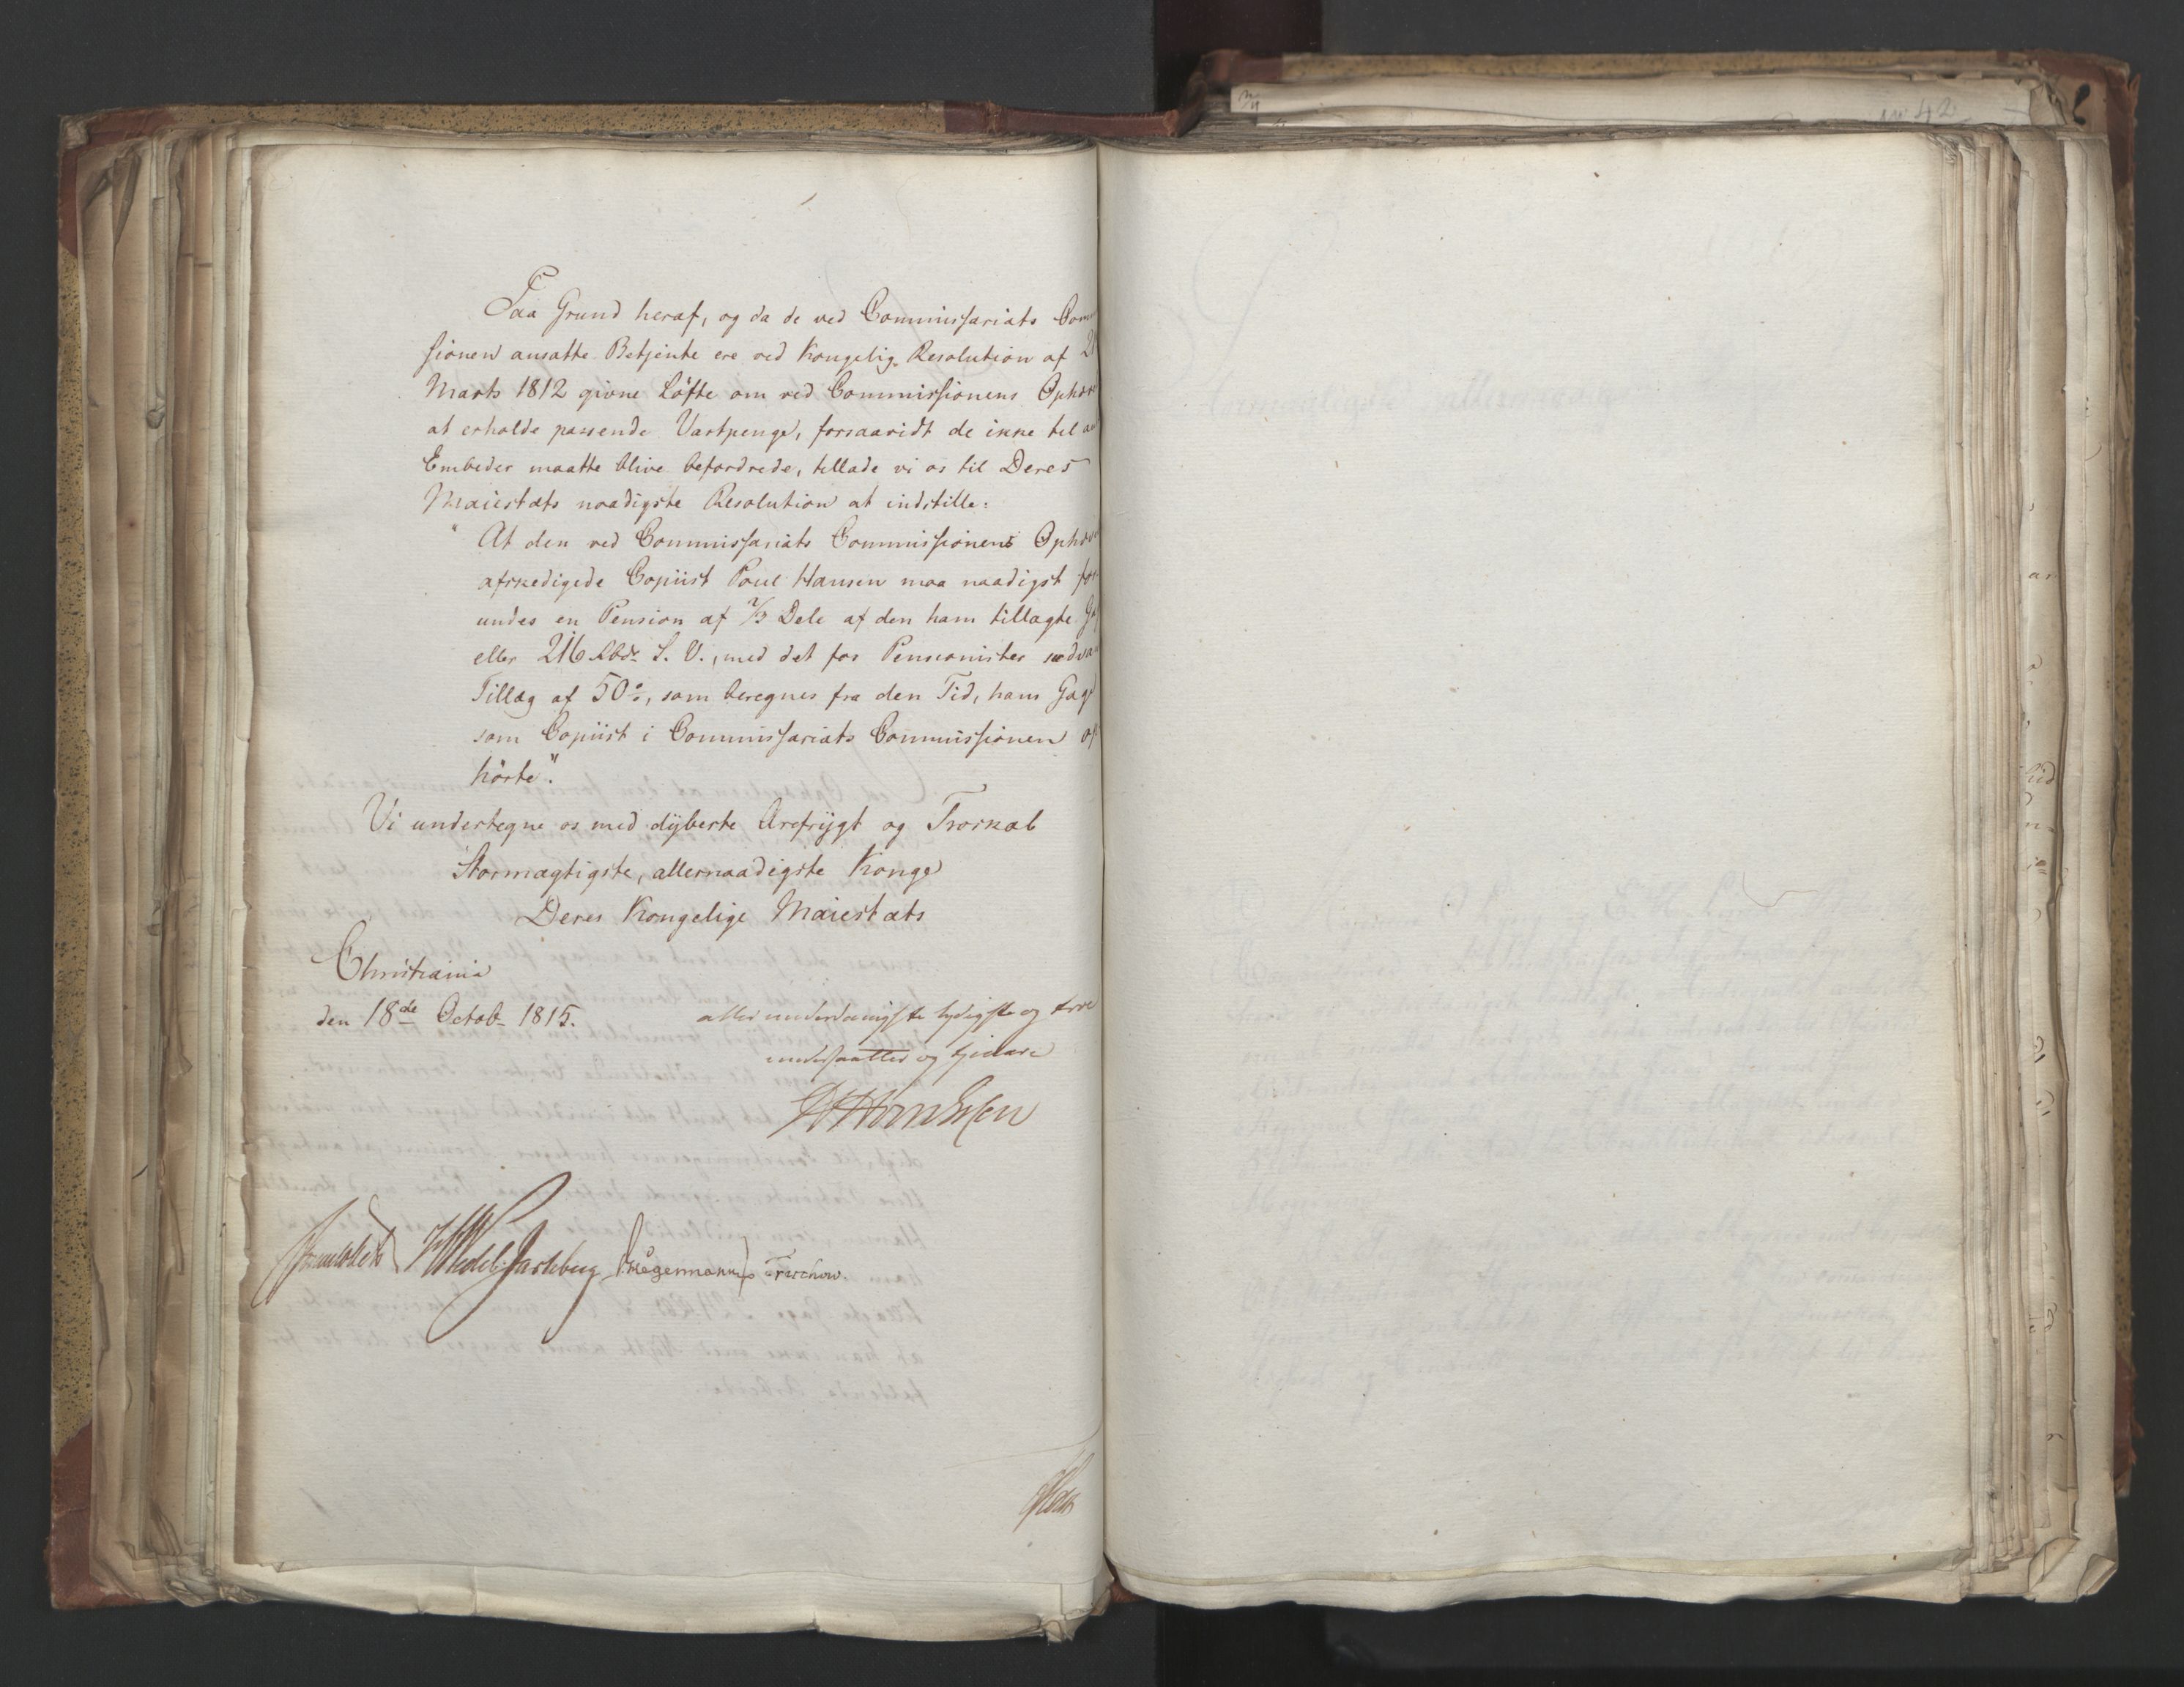 Paa Grund heraf, og da de ved Commissariats Com
sionen ansatte Betjente ere ved Kongelig Resolution af 21
Marts 1812 givne Löfte om ved Commissionens Ophør
at erholde passende Vartpenge, forsaavidt de ikke til an
Embeder maatte blive befordrede, tillade vi os til Deres
Maiestæts naadigste Resolution at indstille:
"At den ved Commissariats Commissionens Ophør
afskedigede Copiist Poul Hansen maa naadigst for-
undes en Pension af 2/3 Dele af den ham tillagte Ga
eller 216 Rbdr S. V., med det for Pensionister sædvan
Tillæg af 50%, som beregnes fra den Tid, hans Gage
som Copiist i Commissariats Commissionen op-
hörte".
Vi undertegne os med dÿbeste Ærefrÿgt og Troskab
Stormægtigste, allernaadigste Konge
Deres Kongelige Maiestæts
Christiania
den 18de Octobr 1815.
allerunderdanigste lydigste og troe
undersaatter og tjenere
Sommerhielm Wedel Jarlsberg Hegermann Treschow.
No 42